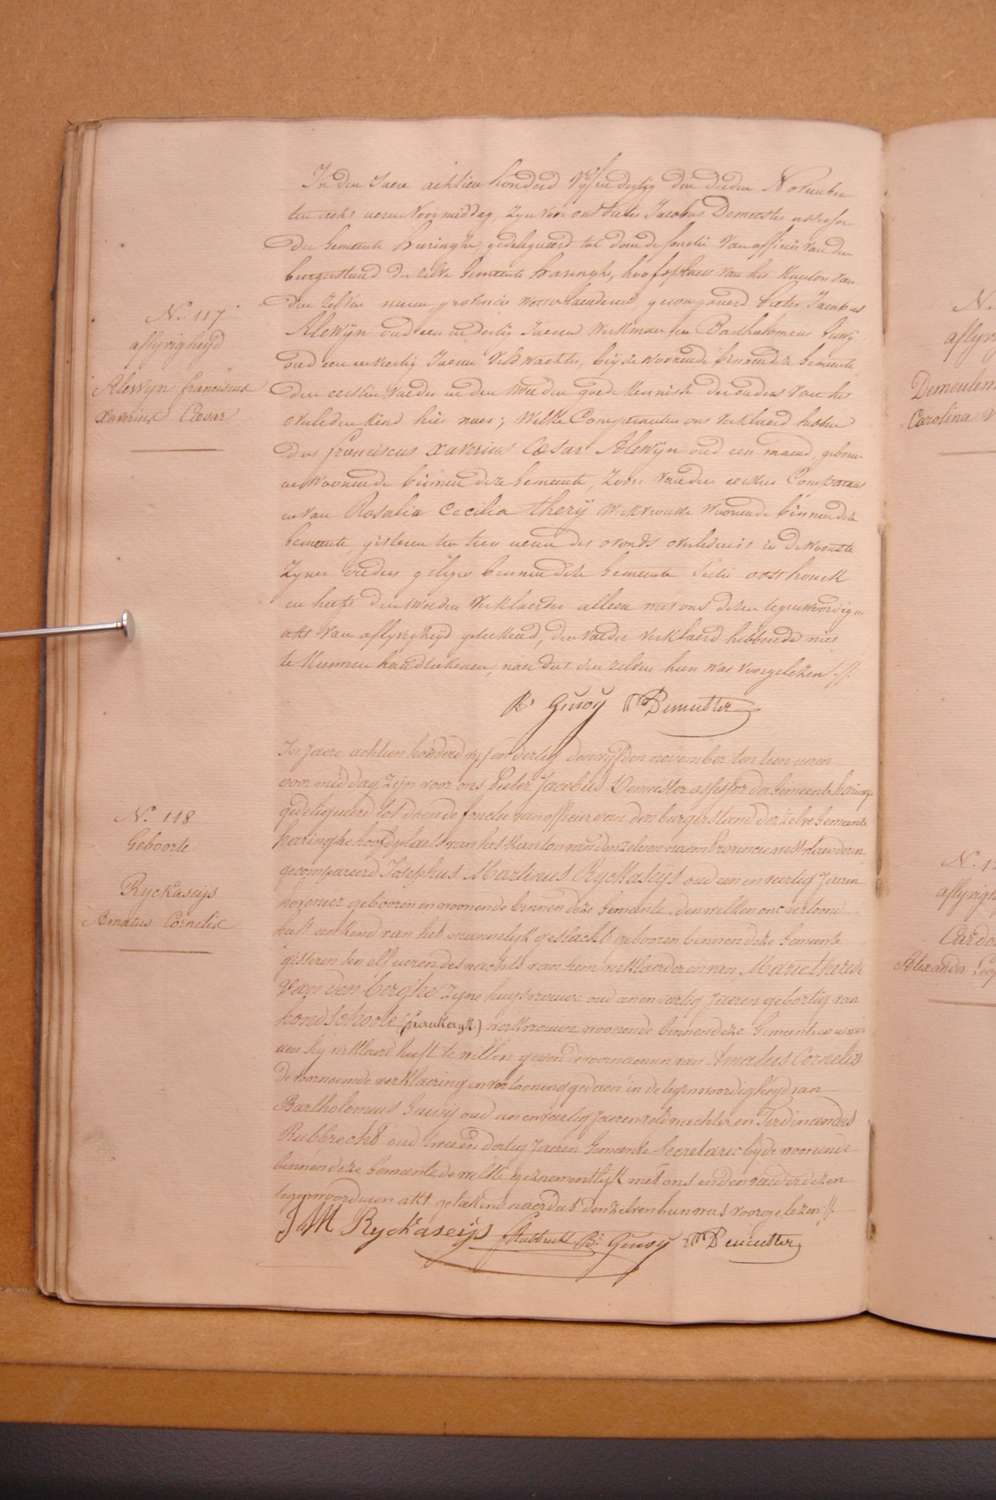 In den Jaere achtien honderd vyf en dertig den derden November
ten acht ueren voormiddag, zyn voor ons Pieter Jacobus Demeester assessor
der Gemeente Haringhe, gedelegueerd tot doen de functie van officier van den
burgerstand der zelve Gemeente Haringhe, hoofdplaets van het Kanton van
den zelfden naem provincie Westvlaenderen, gecompareerd Pieter Jacobus
Alewyn oud een en dertig Jaeren Werkman en Bartholomeus Guwy
oud een en veertig Jaeren Veldwachter, beyde woonende binnen deze Gemeente,
den eersten Vader en den tweeden goede Kennisse der ouders van het
overleden kind hier naer; Welke Comparanten ons verklaerd hebben
dat Franciscus Xaverius Cæsar Alewyn oud een maend, geboren
en woonende binnen deze Gemeente, Zoon van den eersten Comparant
en van Rosalia Cecilia Thery Werkvrouwe woonende binnen deze
Gemeente gisteren ten tien ueren des avonds overleden is in de Woonste
Zyner ouders gelegen binnen deze Gemeente Sectie Oosthouck
en heeft den tweeden Verklaerder alleen met ons dezen tegenwoordigen
akt van aflyvigheyd geteekend, den vader Verklaerd hebbende niet
te Kunnen handteekenen, naer dat den zelven hun was voorgelezen //.
Bs Guwy PJDemeester
N.° 117
aflyvigheyd
Alewyn Franciscus
Xaverius Cæsar
In jaere achtien honderd vyf en dertig den vyfden november ten tien ueren
voormiddag, Zyn voor ons Pieter Jacobus Demeester assessor der Gemeente haringe
gedelegueerd tot doen de functie van officier van den burgerstand der zelve Gemeente
haringhe hoofdplaets van het Kanton van den zelven naem Provincie westvlaenderen
gecompareerd Josephus Martinus Ryckaseijs oud een en veertig Jaeren
hovenier gebooren en woonende binnen deze Gemeente, den welken ons vertoond
heeft een kind van het mannelyk geslacht gebooren binnen deze Gemeente
gisteren ten elf ueren des nachts van hem verklaerder en van Marie therese
Van den berghe Zyne huysvrouwe oud een en dertig Jaeren geboortig van
hondschoote (frankryk) werkvrouwe woonende binnen deze Gemeente en aen wie
hy verklaerd heeft te willen geven de voornaemen van Amatus Cornelis
De voornoemde verklaering en vertooning gedaen in de tegenwoordigheyd van
Bartholomeus Guwy oud een en veertig Jaeren veldwachter en Ferdinandus
Rubbrecht oud twee en dertig Jaeren Gemeente Secretaris beyde woonende
binnen deze Gemeente de welke gezamentlyk met ons en den vader dezen
tegenwoordigen akt geteekend naer dat den zelven hun was voorgelezen //.
J M Ryckaseijs FRubbrecht Bs Guwy PJDemeester
N.° 118
Geboorte
Ryckaseijs
Amatus Cornelis
N.
aflyvig
Demeulem
Carolina
N.° 1
aflyvigh
Cardo
Alexander